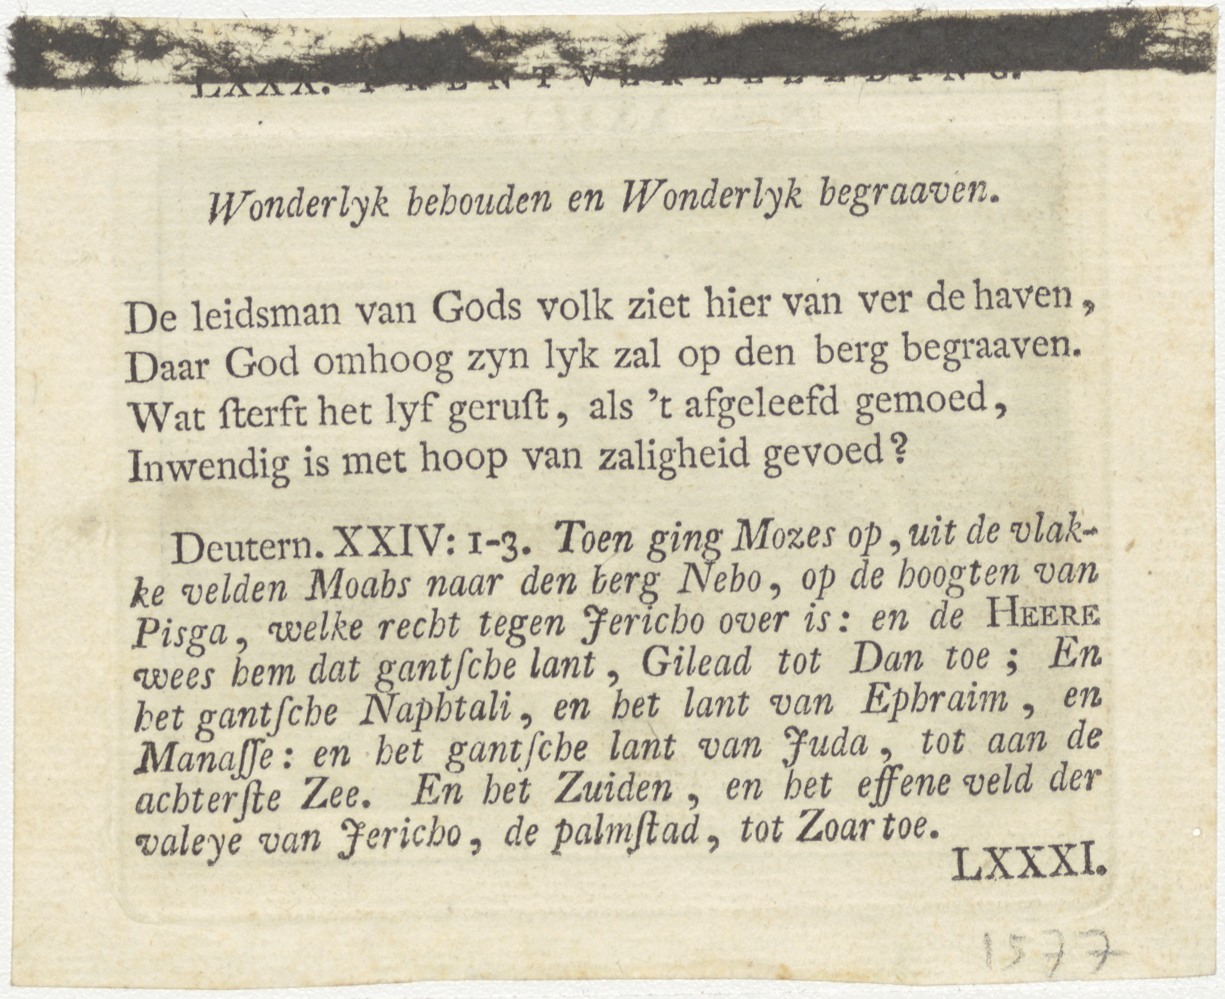 LXXX. PRENTVERBEELDING.
Wonderlyk behouden en Wonderlyk begraaven.
De leidsman van Gods volk ziet hier van ver de haven,
Daar God omhoog zyn lyk zal op den berg begraaven.
Wat ſterft het lyf geruſt, als 't afgeleefd gemoed,
Inwendig is met hoop van zaligheid gevoed?
Deutern. XXIV: 1-3. Toen ging Mozes op, uit de vlak-
ke velden Moabs naar den berg Nebo, op de hoogten van
Pisga, welke recht tegen Jericho over is: en de HEERE
wees hem dat gantſche lant, Gilead tot Dan toe; En
het gantſche Naphtali, en het lant van Ephraim, en
Manaſſe: en het gantſche lant van Juda, tot aan de
achterſte Zee. En het Zuiden, en het effene veld der
valeye van Jericho, de palmſtad, tot Zoar toe.
LXXXI.
1577